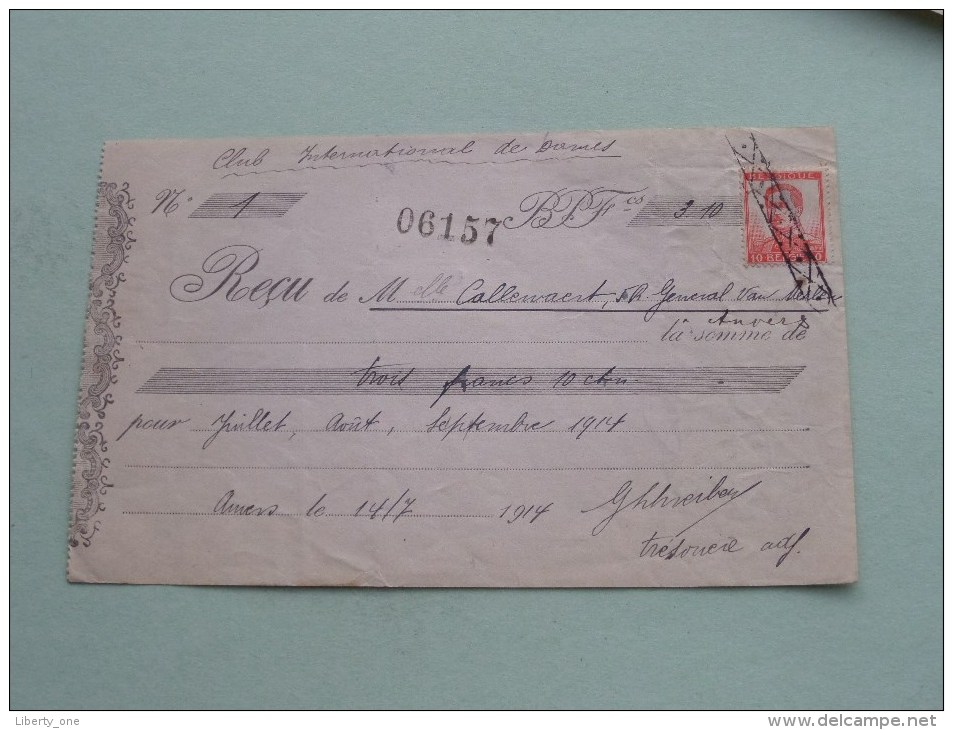 Club International de Dames
N° 1 06157 B.P.Fcs 3.10
BELGIQUE
10 BELGIË 10
Reçu de Melle Callewaert, R. General Van
Anvers
la somme de
trois francs 10 ctm.
pour Juillet, Août, Septembre 1914
Anvers le 14/7 1914
trésorière adj.
Liberty_one
delcampe.net